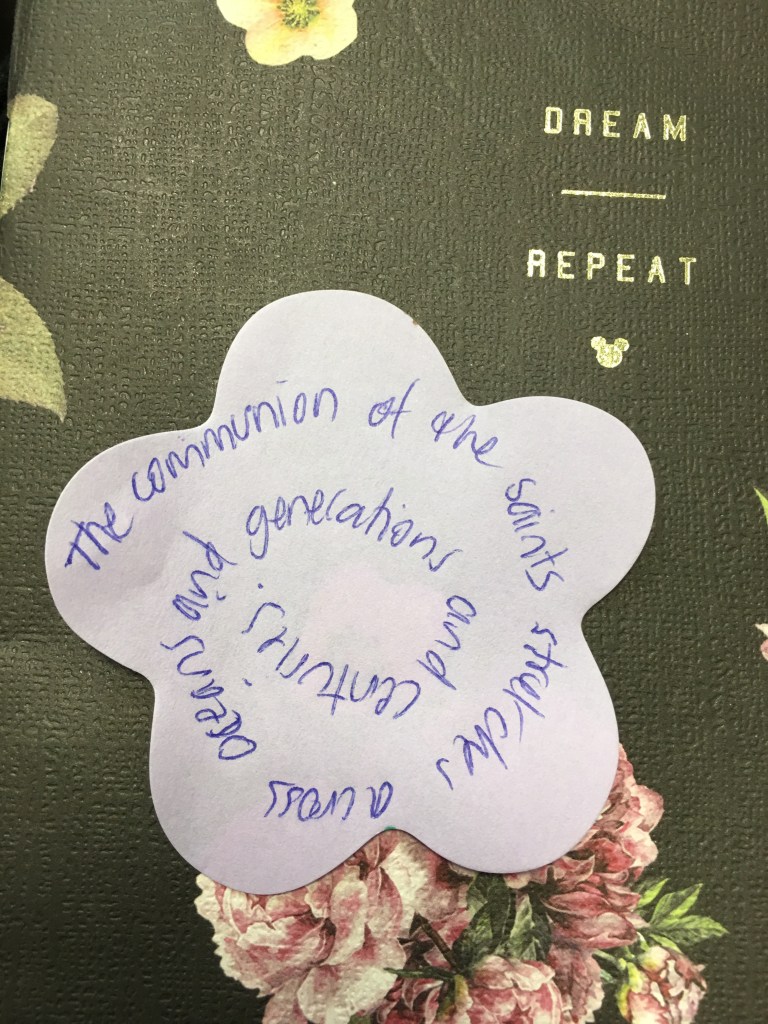 DREAM
REPEAT
the communion of the saints stretches across oceans and generations and centuries.